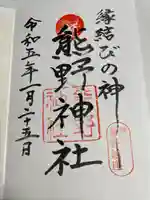 縁結びの神
熊野神社
令和五年一月二十五日